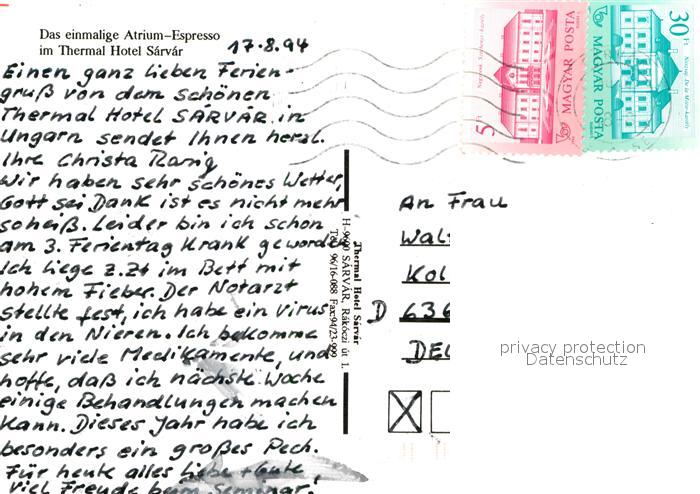 Das einmalige Atrium-Espresso
im Thermal Hotel Sárvár
17.8.94
Einen ganz lieben Ferien-
gruß von dem schönen
Thermal Hotel SÁRVÁR in
Ungarn sendet Ihnen herzl.
Ihre Christa
Wir haben sehr schönes Wetter,
Gott sei Dank ist es nicht mehr
so heiß. Leider bin ich schon
am 3. Ferientag Krank geworden
Ich liege z.Zt im Bett mit
hohem Fieber. Der Notarzt
stellte fest, ich habe ein Virus
in den Nieren. Ich bekomme
sehr viele Medikamente, und
hoffe, daß ich nächste Woche
einige Behandlungen machen
Kann. Dieses Jahr habe ich
besonders ein großes Pech.
Für heute alles liebe + Gute
viel Freude beim Seminar!
Thermal Hotel Sárvár
H-9600 SÁRVÁR, Rákóczi út 1.
Tel: 96/16-088 Fax:94/23-999
5 Ft
MAGYAR POSTA
30 Ft
MAGYAR POSTA
An Frau
Wal
Kol
D 636
DEL
privacy protection
Datenschutz